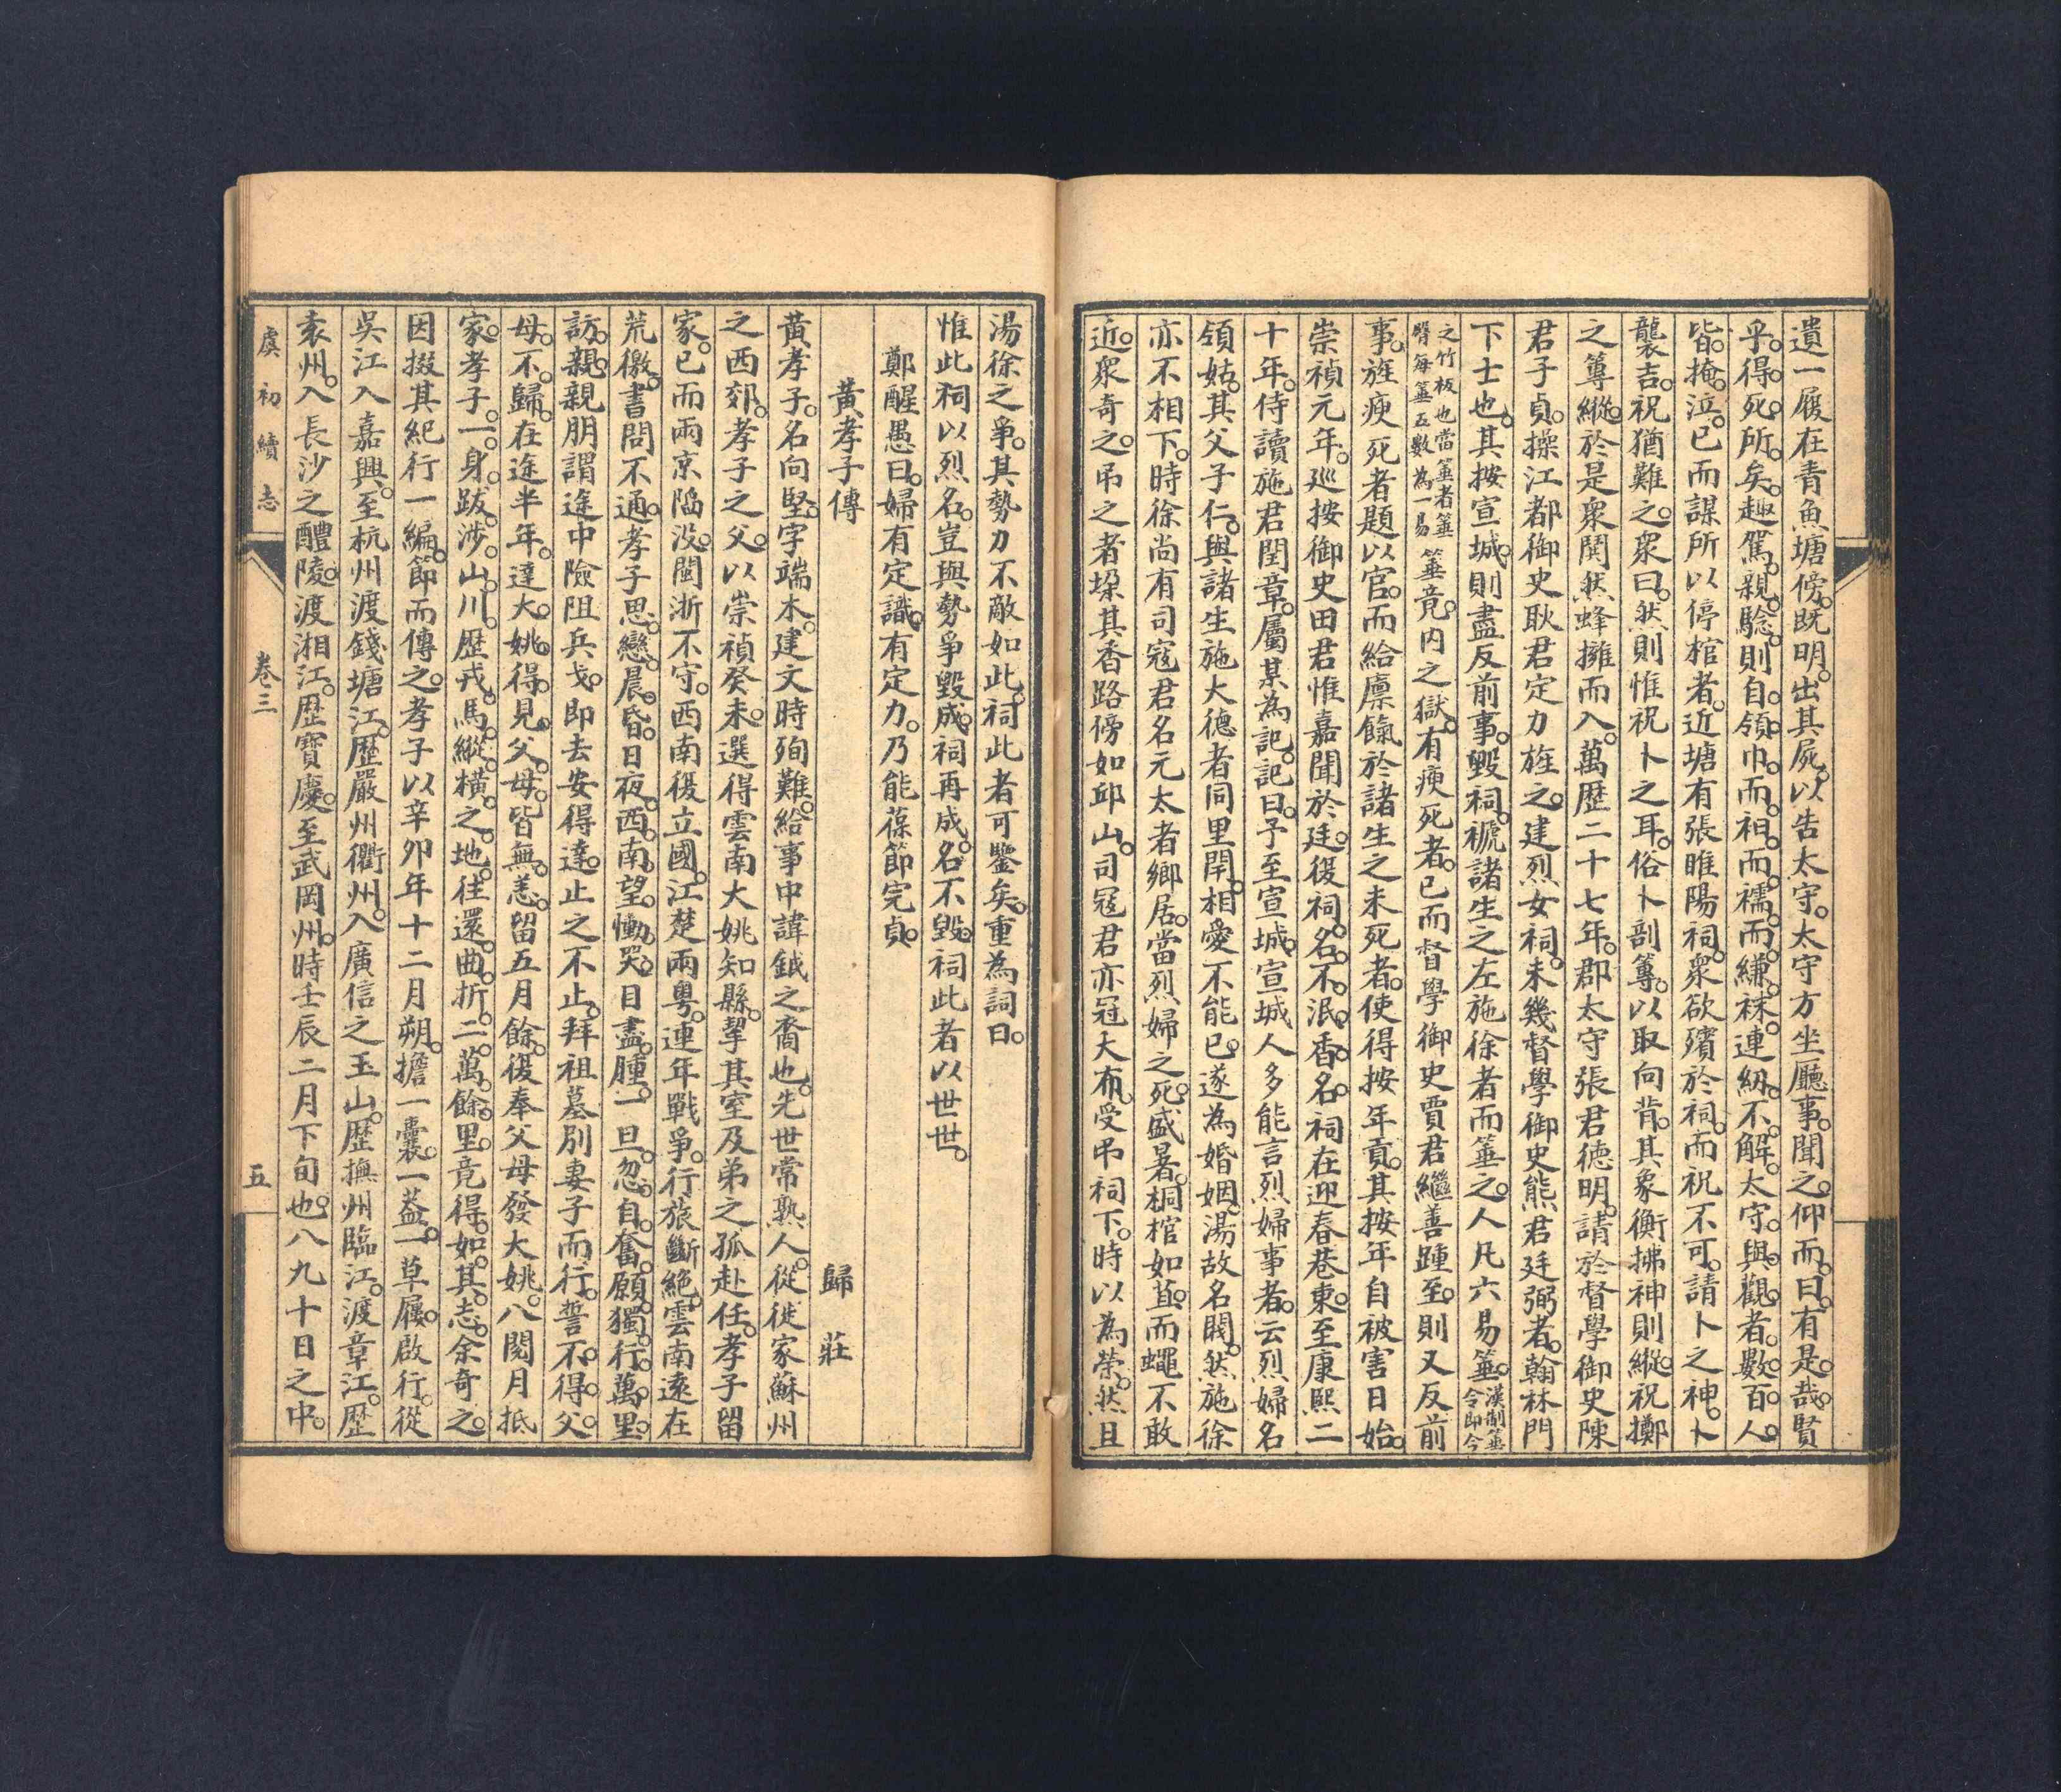 遺一履在青魚塘傍。既明。出其屍。以告太守。太守方坐廳事。聞之。仰而曰。有是哉。賢
乎。得死所矣。趣駕。親騐。則自領巾。而衵。而襦。而縑袜。連紉不解。太守與觀者。數百人。
皆掩泣。已而謀所以停棺者。近塘有張睢陽祠。衆欲殯於祠。而祝不可。請卜之神。卜
襲吉。祝猶難之。衆曰。然則惟祝卜之耳。俗卜剖籌。以取向背。其象衡拂神則縱。祝擲
之籌縱。於是衆鬨然蜂擁而入。萬歷二十七年。郡太守張君德明。請於督學御史陳
君子貞。操江都御史耿君定力旌之。建烈女祠。未幾督學御史熊君廷弼者。翰林門
下士也。其按宣城。則盡反前事。毀祠。褫諸生之左施徐者而箠之。人凡六易箠。漢制箠令即今
之竹板也當箠者箠臀每箠五數為一易箠竟。內之獄。有瘐死者。已而督學御史賈君繼善踵至。則又反前
事。旌瘐死者題以官。而給廩餼於諸生之未死者。使得按年貢。其按年自被害日始。
崇禎元年。巡按御史田君惟嘉聞於廷。復祠。名不泯。香名。祠在迎春巷東。至康熙二
十年。侍讀施君閏章。屬某為記。記曰。予至宣城。宣城人多能言烈婦事者。云烈婦名
領姑。其父子仁。與諸生施大德者同里閈。相愛不能已。遂為婚姻。湯故名閥。然施徐
亦不相下。時徐尚有司寇君名元太者鄉居。當烈婦之死。盛暑。桐棺如苴。而蠅不敢
近。衆奇之。弔之者垜其香路傍如邱山。司寇君亦冠大布。受弔祠下。時以為榮。然且
湯徐之爭。其勢力不敵如此。祠此者可鑒矣。重為詞曰。
惟此祠以烈名。豈與勢爭毀成。祠再成。名不毀。祠此者以世世。
鄭醒愚曰。婦有定識。有定力。乃能葆節完貞。
黃孝子傳 歸 莊
黃孝子。名向堅。字端木。建文時殉難。給事中諱鉞之裔也。先世常熟人。從徙家蘇州
之西郊。孝子之父。以崇禎癸未。選得雲南大姚知縣。挈其室及弟之孤赴任。孝子留
家。已而兩京陷没。閩浙不守。西南復立國。江楚兩粵。連年戰爭。行旅斷絶。雲南遠在
荒徼。書問不通。孝子思戀。晨昏。日夜。西南望。慟哭。目盡腫。一旦忽自奮。願獨行萬里。
訪親。親朋謂途中險阻兵戈。即去安得達。止之不止。拜祖墓別妻子而行。誓不得父
母。不歸。在途半年。達大姚。得見父母。皆無恙。留五月餘。復奉父母發大姚。八閱月抵
家。孝子一身跋涉山川。歷戎馬縱橫之地。往還曲折。二萬餘里。竟得如其志。余奇之。
因掇其紀行一編。節而傳之。孝子以辛卯年十二月朔。擔一囊。一葢。一草屨。啟行。從
吳江入嘉興。至杭州渡錢塘江。歷嚴州衢州。入廣信之玉山。歷撫州臨江。渡章江。歷
袁州。入長沙之醴陵。渡湘江。歷寶慶。至武岡州。時壬辰二月下旬也。八九十日之中。
虞初續志 卷三 五